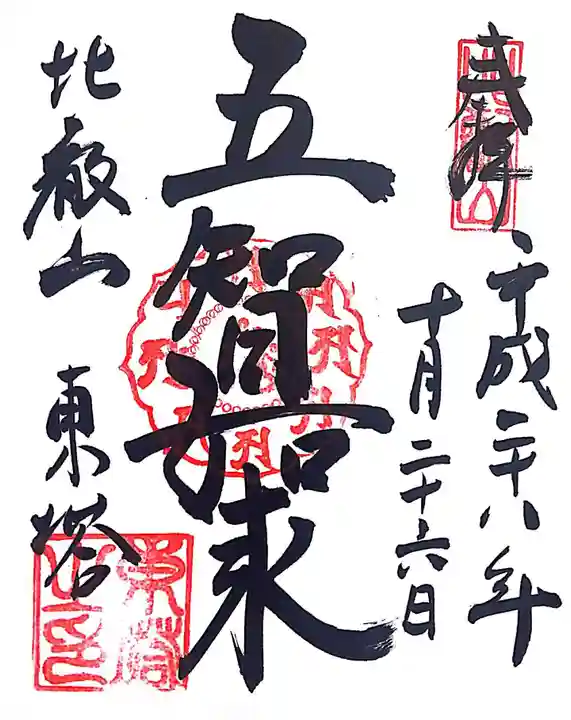 奉拝、平成二十八年
十月二十六日
五智如来
比叡山 東塔